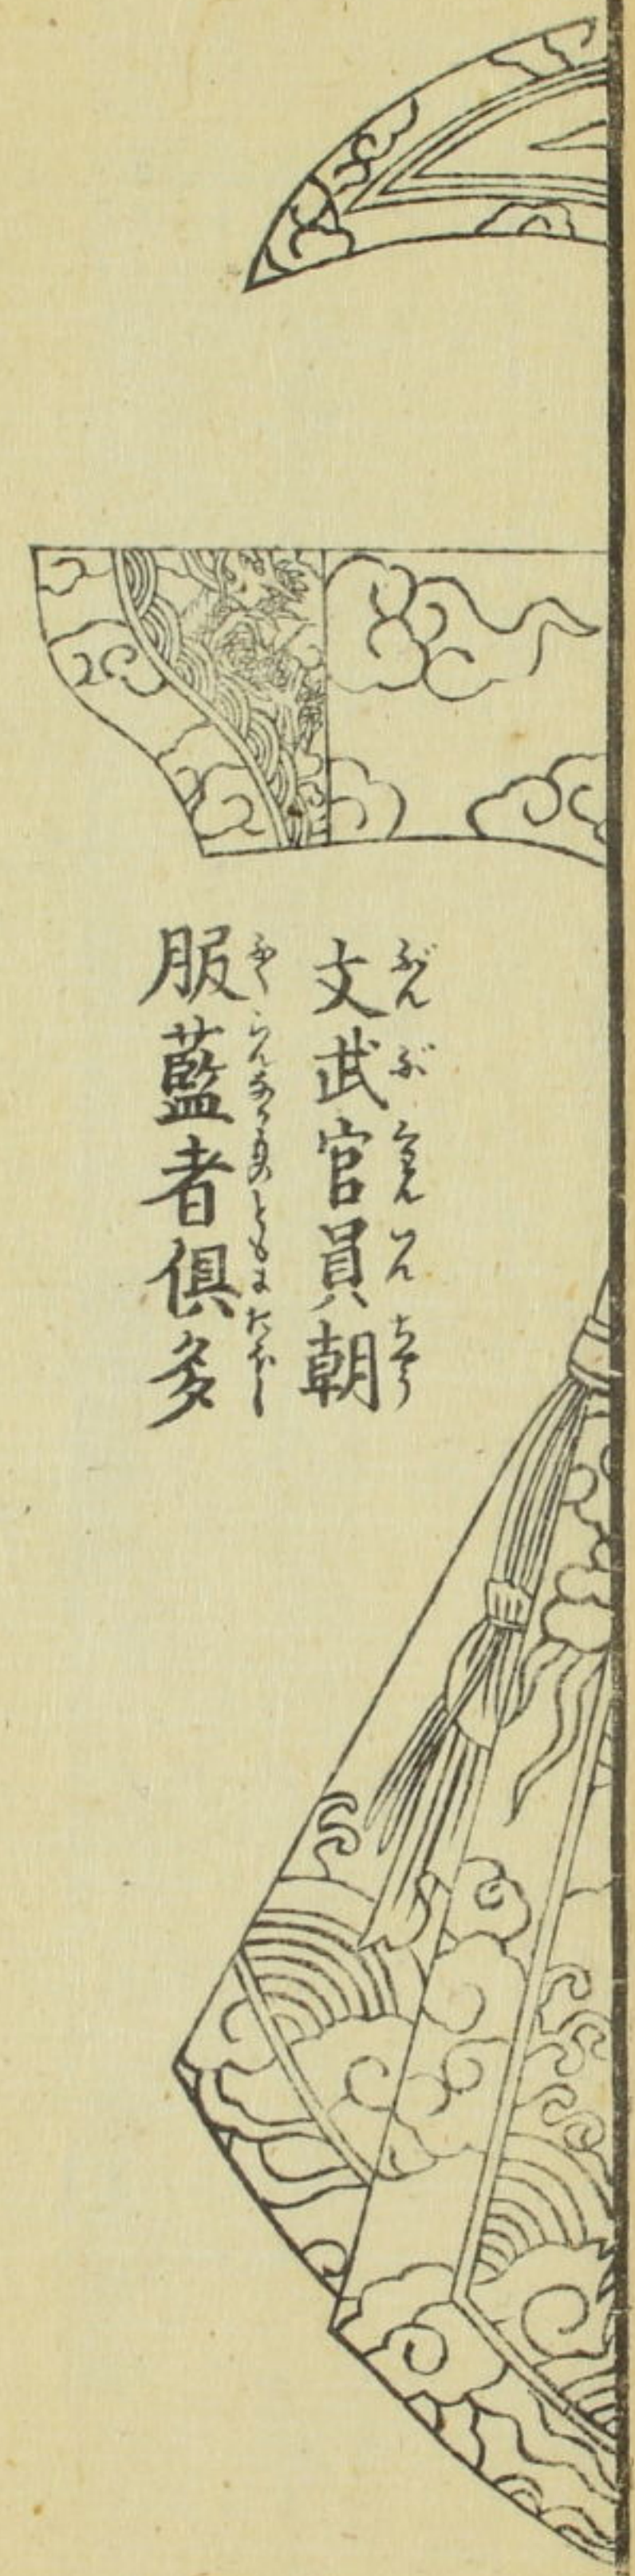 文武官員朝
ぶん ぶ くわん いん ちやう
服藍者俱多
ふく らんなるものともにたおほし